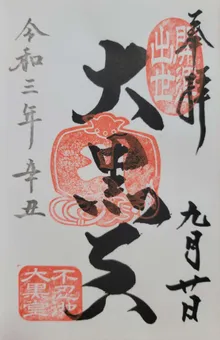 奉拝
開運
出世
大黒天
九月廿日
令和三年辛丑
不忍池
大黒堂